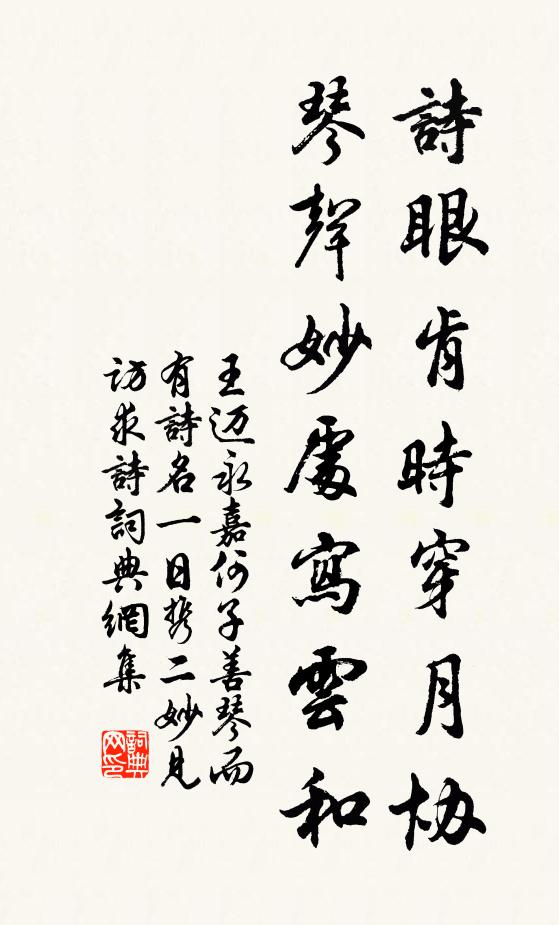 詩眼肯時穿月协
琴聲妙處寫雲和
王迈永嘉何子善琴而
有詩名一日携二妙見
訪求詩詞典網集
詞典网印